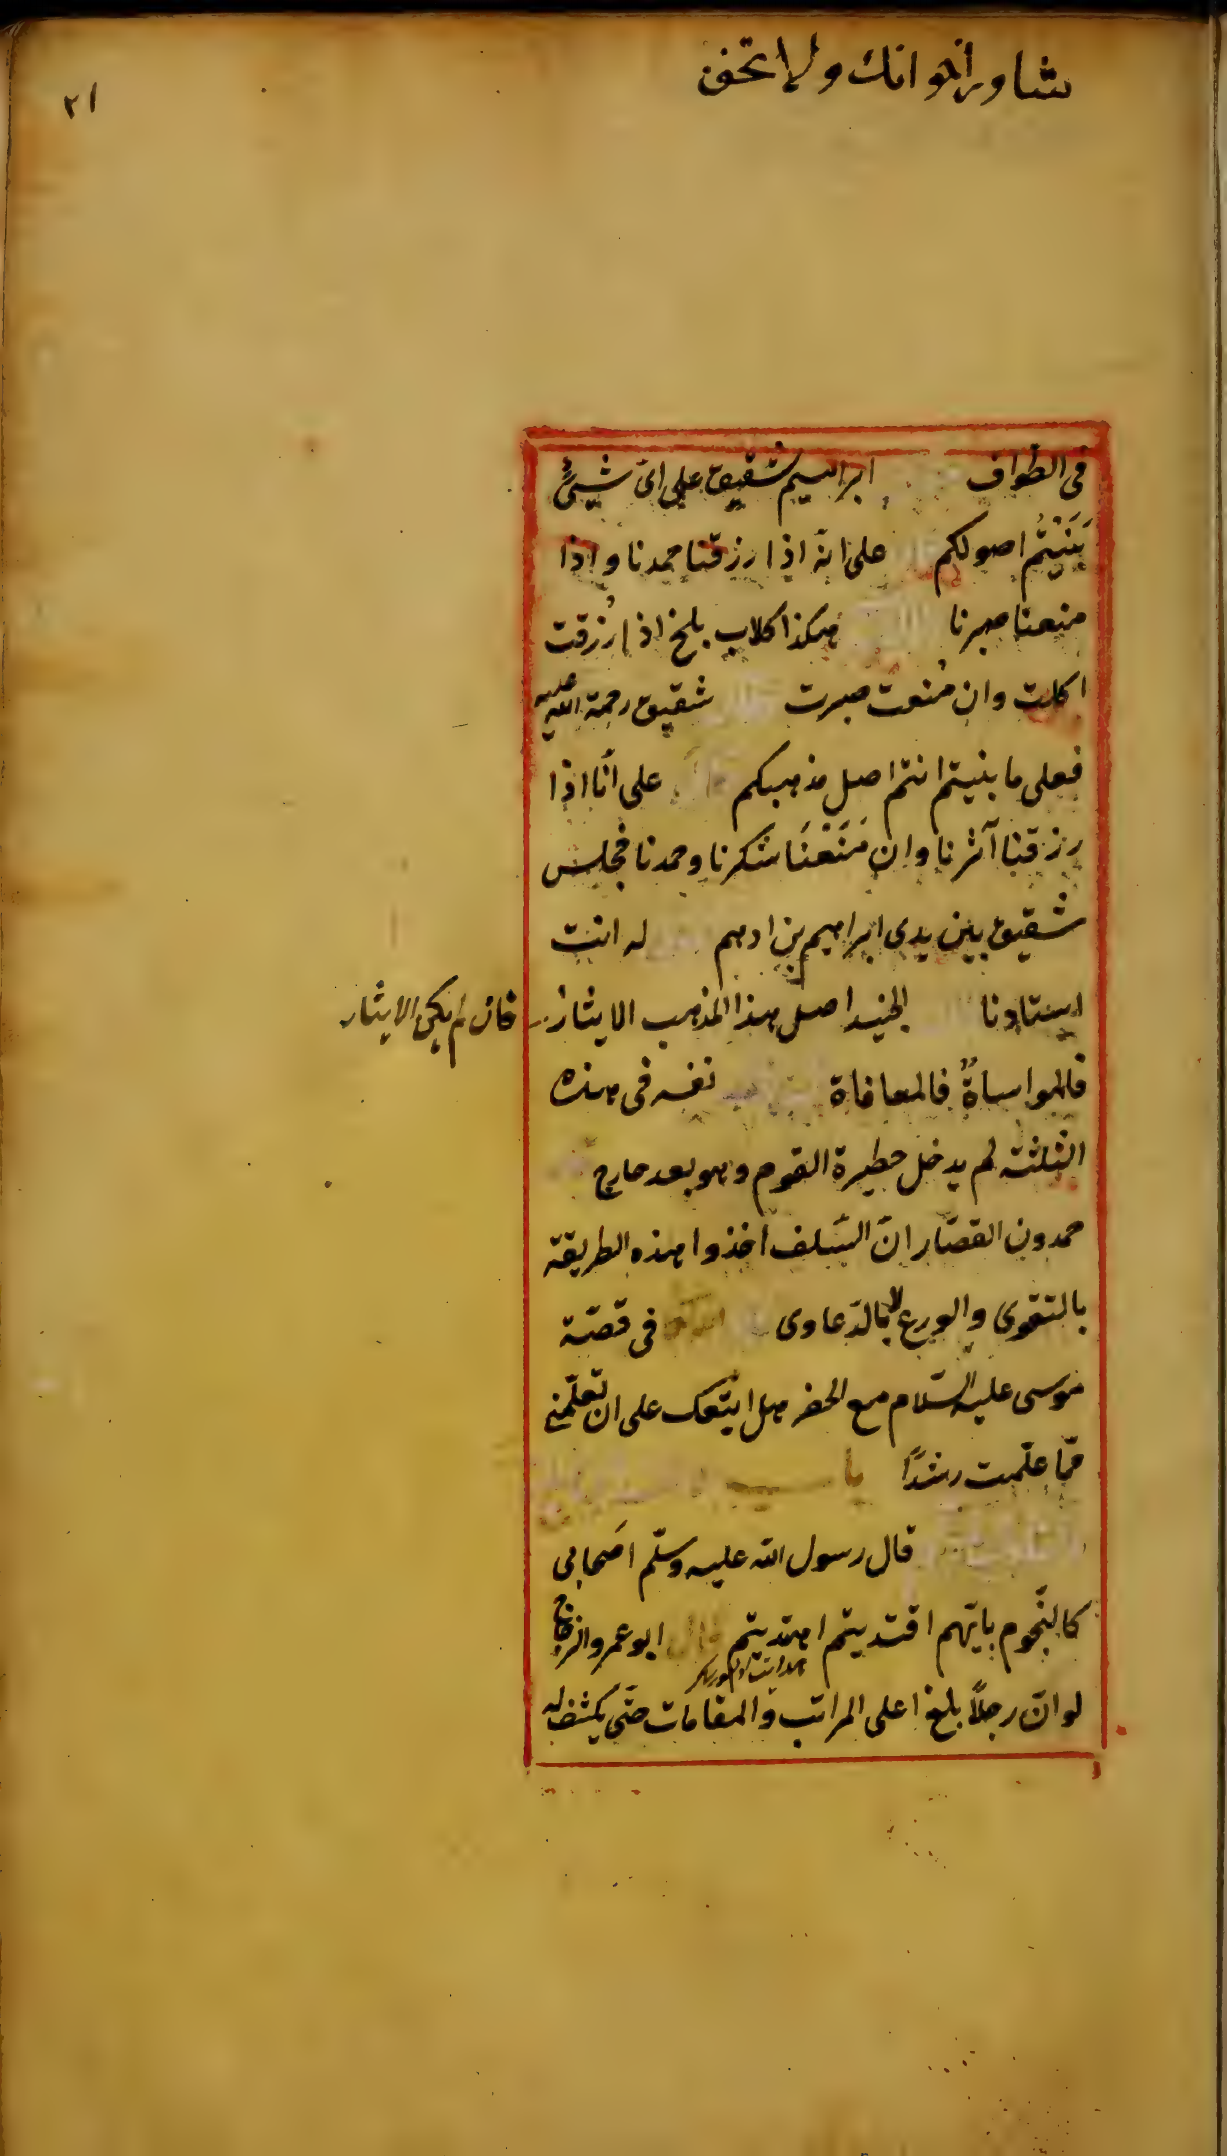 شاور اخوانك ولا تخف
٢١
فى الطواف ابراهيم لشقيق على اىّ شىءٍ
بَنَيْتُم اصولكم على انّه اذا رزقنا حمدنا واذا
منعنا صبرنا هكذا كلاب بلخ اذا رُزقت
اكلت وان مُنعت صبرت شقيق رحمة الله عليه
فعلى ما بنيتم انتم اصل مذهبكم على انّا اذا
رزقنا آثرنا وان مَنَعْنَا شكرنا وحمدنا فجلس
شقيق بين يدى ابراهيم بن ادهم له انت
استادنا الجنيد اصل هذا المذهب الايثار
فان لم يكن الايثار
فالمواساةُ فالمعافاة نفسه فى هذه
الثلثة لم يدخل حظيرة القوم وهو بعد خارج
حمدون القصّار انّ السّلف اخذوا هذه الطريقة
بالتقوى والورع لا بالدّعاوى فى قصّة
موسى عليه السّلام مع الخضر هل اتّبعك على ان تعلّمنى
ممّا علّمت رشدًا
قال رسول الله عليه وسلّم اصحابى
كالنّجوم بايّهم اقتديتم اهتديتم قال ابو عمرو الزجّاج
لو انّ رجلًا بلغ اعلى المراتب والمقامات حتّى يكشف له